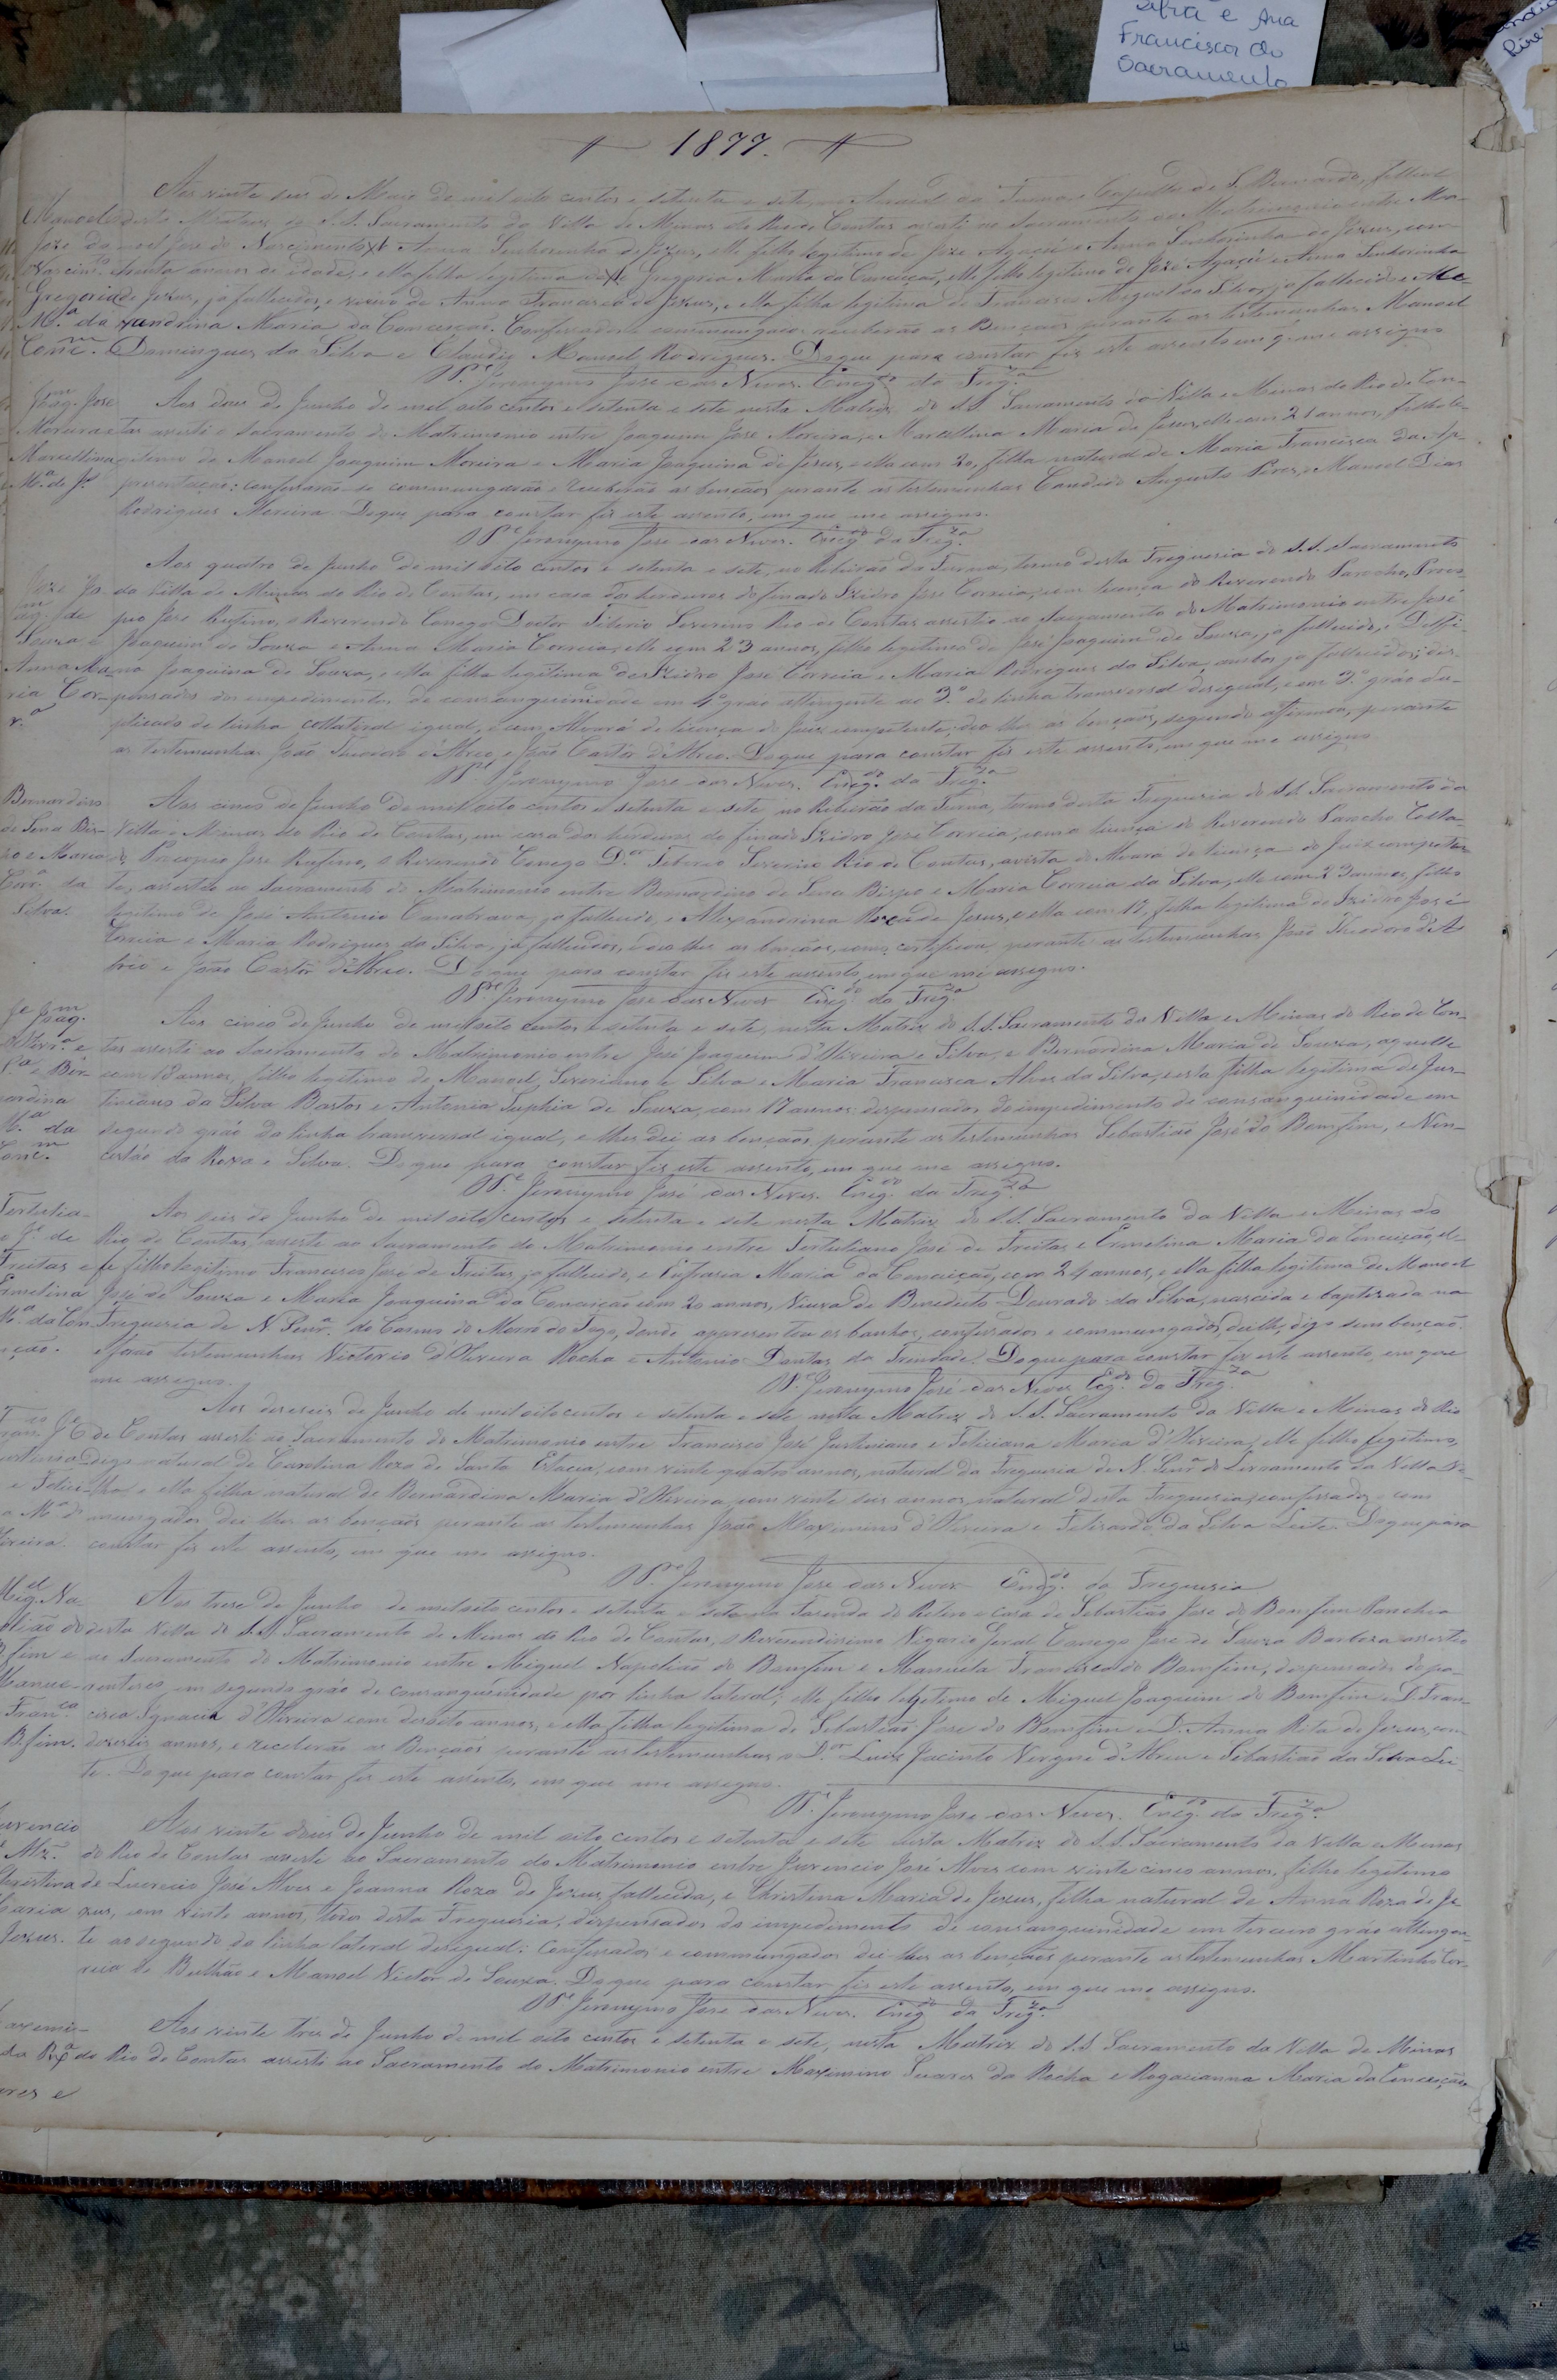 Afra e Ana
Francisca do
Sacramento
1877.
Aos vinte seis de Maio de mil oito centos e setenta e sete, no Arraial da Furna, e Capella de S. Bernardo, filial
Manoel desta Matriz do S.S. Sacramento da Villa de Minas do Rio de Contas assisti ao Sacramento do Matrimonio entre Ma-
José do noel José do Nascimento
Nascim.to e ella filha legitima Gregoria Maria da Conceição, elle filho legitimo de José Agaciô e Anna Senhorinha
Gregoria de Jezus, já fallecidos, e viuvo de Anna Francisca de Jezus, e ella filha legitima de Francisco Miguel da Silva, já fallecido e Ale-
M.a da xandrina Maria da Conceição. Confessados e commungados receberão as Bençaõs perante as testemunhas Manoel
Conc.m Domingues da Silva e Claudio Manoel Rodrigues. Do que para constar fiz este assento em que me assigno
P.e Jeronymo José das Neves. Encg.do da Freg.za
Joaq.m José Aos dous de Junho de mil oito centos e setenta e sete nesta Matriz do S.S. Sacramento da Villa e Minas do Rio de Con-
Moreira e tas assisti o Sacramento do Matrimonio entre Joaquim José Moreira, e Marcellina Maria de Jesus, elle com 21 annos, filho le-
Marcellina gitimo de Manoel Joaquim Moreira e Maria Joaquina de Jesus, e ella com 20, filha natural de Maria Francisca da Ap-
M.a de J.s presentação: confessarão-se commungarão e receberão as bençaõs perante as testemunhas Candido Augusto Pires, e Manoel Dias
Rodrigues Moreira. Do que para constar fiz este assento, em que me assigno.
P.e Jeronymo José das Neves. Encg.do da Freg.za
Aos quatro de Junho de mil oito centos e setenta e sete, no Ribeirão da Furna, termo desta Freguesia do S.S. Sacramento
José Jo- da Villa de Minas do Rio de Contas, em casa dos herdeiros do finado Izidro José Correia, com licença do Reverendo Parocho, Proco-
aq.m de pio José Rufino, o Reverendo Conego Doutor Tiberio Severino Rio de Contas assistio ao Sacramento do Matrimonio entre José
Souza e Joaquim de Souza e Anna Maria Correia, elle com 23 annos, filho legitimo de José Joaquim de Souza, já fallecido, e Delfi-
Anna Ma- na Joaquina de Souza, e ella filha legitima de Izidro José Correia e Maria Rodrigues da Silva, ambos já fallecidos; dis-
ria Cor- pensados do impedimento de consanguinidade em 4º grao attingente ao 3º de linha transversal desigual, e em 3º grão du-
r.a plicado de linha collateral igual, e com Alvará de licença do Juiz competente, deo-lhes as bençaõs, segundo afirmou, perante
as testemunhas João d'Abreo, e João Castor d'Abreo. Do que para constar fiz este assento, em que me assigno
P.e Jeronymo José das Neves. Encg.do da Freg.za
Bernardino Aos cinco de Junho de mil oito centos e setenta e sete no Ribeirão da Furna, termo desta Freguesia do S.S. Sacramento da
de Sena Bis- Villa e Minas do Rio de Contas, em casa dos herdeiros do finado Izidro José Correia, com a licença do Reverendo Parocho Colla-
po e Maria do Procopio José Rufino, o Reverendo Conego D.or Tiberio Severino Rio de Contas, a vista do Alvará de licença do Juiz competen-
Corr.a da te, assistio ao Sacramento do Matrimonio entre Bernardino de Sena Bispo e Maria Correia da Silva, elle com 23 annos, filho
Silva. legitimo de José Antonio Canabrava, já fallecido, e Alexandrina Roza de Jesus, e ella com 17, filha legitima de Izidro José
Correia e Maria Rodrigues da Silva, já fallecidos, deo-lhes as bençaõs, como certificou, perante as testemunhas João Theodoro d'A-
breo e João Castôr d'Abreo. Do que para constar fiz este assento, em que me assigno.
P.e Jeronymo José das Neves Encg.do da Freg.za
J.e Joaq.m Aos cinco de Junho de mil oito centos e setenta e sete, nesta Matriz do S.S. Sacramento da Villa e Minas do Rio de Con-
d'Oliv.a e tas assisti ao Sacramento do Matrimonio entre José Joaquim d'Oliveira e Silva, e Bernardina Maria de Souza, aquelle
S.a e Ber- com 18 annos, filho legitimo de Manoel Severiano e Silva e Maria Francisca Alves da Silva, e esta filha legitima de Jus-
nardina tiniano da Silva Bastos e Antonia Suphia de Souza, com 17 annos: dispensados do impedimento de consanguinidade em
M.a da segundo grão da linha transversal igual, e lhes dei as bençaõs perante as testemunhas Sebastião José do Bomfim, e Nen-
Conc.m ceslão da Roza e Silva. Do que para constar fiz este assento, em que me assigno.
P.e Jeronymo José das Neves. Encg.do da Freg.za
Tertulia- Aos seis de Junho de mil oito centos e setenta e sete nesta Matriz do S.S. Sacramento da Villa e Minas do
o J.e de Rio de Contas, assisti ao Sacramento do Matrimonio entre Tertuliano José de Freitas e Ermelina Maria da Conceição, el-
Freitas e le filho legitimo Francisco José de Freitas, já fallecido, e Eufrasia Maria da Conceição, com 24 annos, e ella filha legitima de Manoel
Ermelina José de Souza e Maria Joaquina da Conceição com 20 annos, Viuva de Benedicto Dourado da Silva, nascida e baptizada na
M.a da Con- Freguesia de N. Senr.a do Carmo do Morro do Fogo, donde apresentou os banhos, confessados e commungados, dei lhes, digo sem bençaõ.
ceição. Foraõ testemunhas Victorio d'Oliveira Rocha e Antonio Dantas da Trindade. Do que para constar fiz este assento, em que
me assigno. P.e Jeronymo José das Neves Ecg.do da Freg.za
Aos deseseis de Junho de mil oito centos e setenta e sete nesta Matriz do S.S. Sacramento da Villa e Minas do Rio
Fran.co J.e de Contas assisti ao Sacramento do Matrimonio entre Francisco José Justiniano e Feliciana Maria d'Oliveira, elle filho legitimo,
digo natural de Carolina Roza de Santa com vinte quatro annos, natural da Freguesia de N. Senr.a do Livramento da Villa Ve-
e Felici- lha e ella filha natural de Bernardina Maria d'Oliveira com vinte seis annos, natural desta Freguesia; confessados e com-
a M.a d' mungados dei lhes as bençaõs perante as testemunhas João Maximino d'Oliveira e Felisardo da Silva Leite. Do que para
liveira. constar fiz este assento, em que me assigno.
P.e Jeronymo José das Neves Encg.do da Freguesia
Mig.el Na- Aos trese de Junho de mil oito centos e setenta e sete na Fazenda do Retiro e casa de Sebastião José do Bomfim Parochia
polião do desta Villa do S.S. Sacramento de Minas do Rio de Contas, o Reverendissimo Vigario Geral Conego José de Souza Barboza assistio
Bfim e ao Sacramento do Matrimonio entre Miguel Napolião do Bomfim e Manuela Francisca do Bomfim, dispensados do pa-
Manue- rentesco em segundo grão de consanguinidade por linha lateral; elle filho legitimo de Miguel Joaquim do Bomfim e D. Fran-
Fran.ca cisca Ignacia d'Oliveira com desoito annos, e ella filha legitima de Sebastião José do Bomfim e D. Anna Rita de Jezus, com
Bfim. deseseis annos, e receberão as Bençaõs perante as testemunhas o D.or Luiz Jacinto Vergne d'Abreu e Sebastião da Silva Lei-
te. Do que para constar fiz este assento, em que me assigno.
P.e Jeronymo José das Neves. Encg.do da Freg.za
uvencio Aos vinte dous de Junho de mil oito centos e setenta e sete nesta Matriz do S.S. Sacramento da Villa e Minas
Alz. do Rio de Contas assisti ao Sacramento do Matrimonio entre Juvencio José Alves com vinte cinco annos, filho legitimo
Christina de Lucrecio José Alves e Joanna Roza de Jezus fallecida, e Christina Maria de Jezus, filha natural de Anna Roza de Je-
Maria zus, com vinte annos, todos desta Freguesia, dispensados do impedimento de consanguinidade em terceiro grão attingen-
Jezus. te ao segundo da linha lateral desigual: Confessados e commungados dei lhes as bençaõs perante as testemunhas Martinho Cor-
reia de Bulhão e Manoel Victor de Souza. Do que para constar fiz este assento, em que me assigno.
P.e Jeronymo José das Neves. Encg.do da Freg.za
axemi- Aos vinte tres de Junho de mil oito centos e setenta e sete, nesta Matriz do S.S. Sacramento da Villa de Minas
da R.a do Rio de Contas assisti ao Sacramento do Matrimonio entre Maxemino Suares da Rocha e Rogacianna Maria da Conceição
ares e